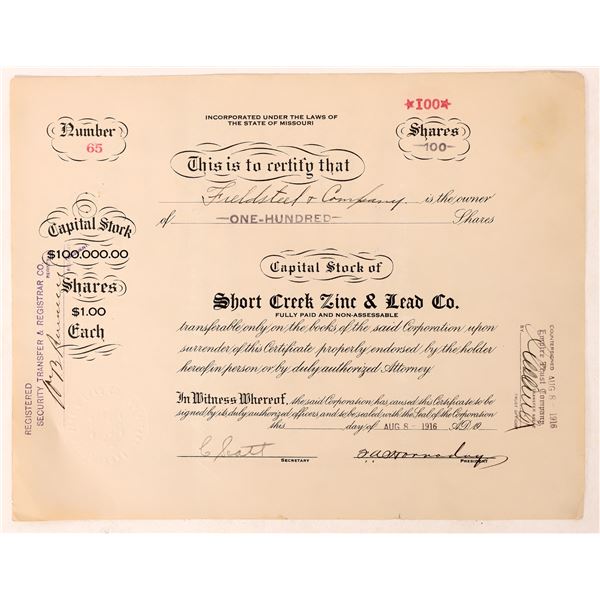 INCORPORATED UNDER THE LAWS OF
THE STATE OF MISSOURI
Number
65
★100★
Shares
100
This is to certify that
Fieldsteel & Company is the owner
of ONE-HUNDRED Shares
Capital Stock
$100,000.00
Shares
$1.00
Each
REGISTERED
SECURITY TRANSFER & REGISTRAR CO.
Capital Stock of
Short Creek Zinc & Lead Co.
FULLY PAID AND NON-ASSESSABLE
transferable only on the books of the said Corporation upon
surrender of this Certificate properly endorsed by the holder
hereof in person or by duly authorized Attorney
In Witness Whereof, the said Corporation has caused this Certificate to be
signed by its duly authorized officers, and to be sealed with the Seal of the Corporation
this day of AUG 8 - 1916 A.D. 19
SECRETARY
PRESIDENT
COUNTERSIGNED AUG 8 - 1916
Empire Trust Company,
TRANSFER AGENT
BY
TRUST OFFICER